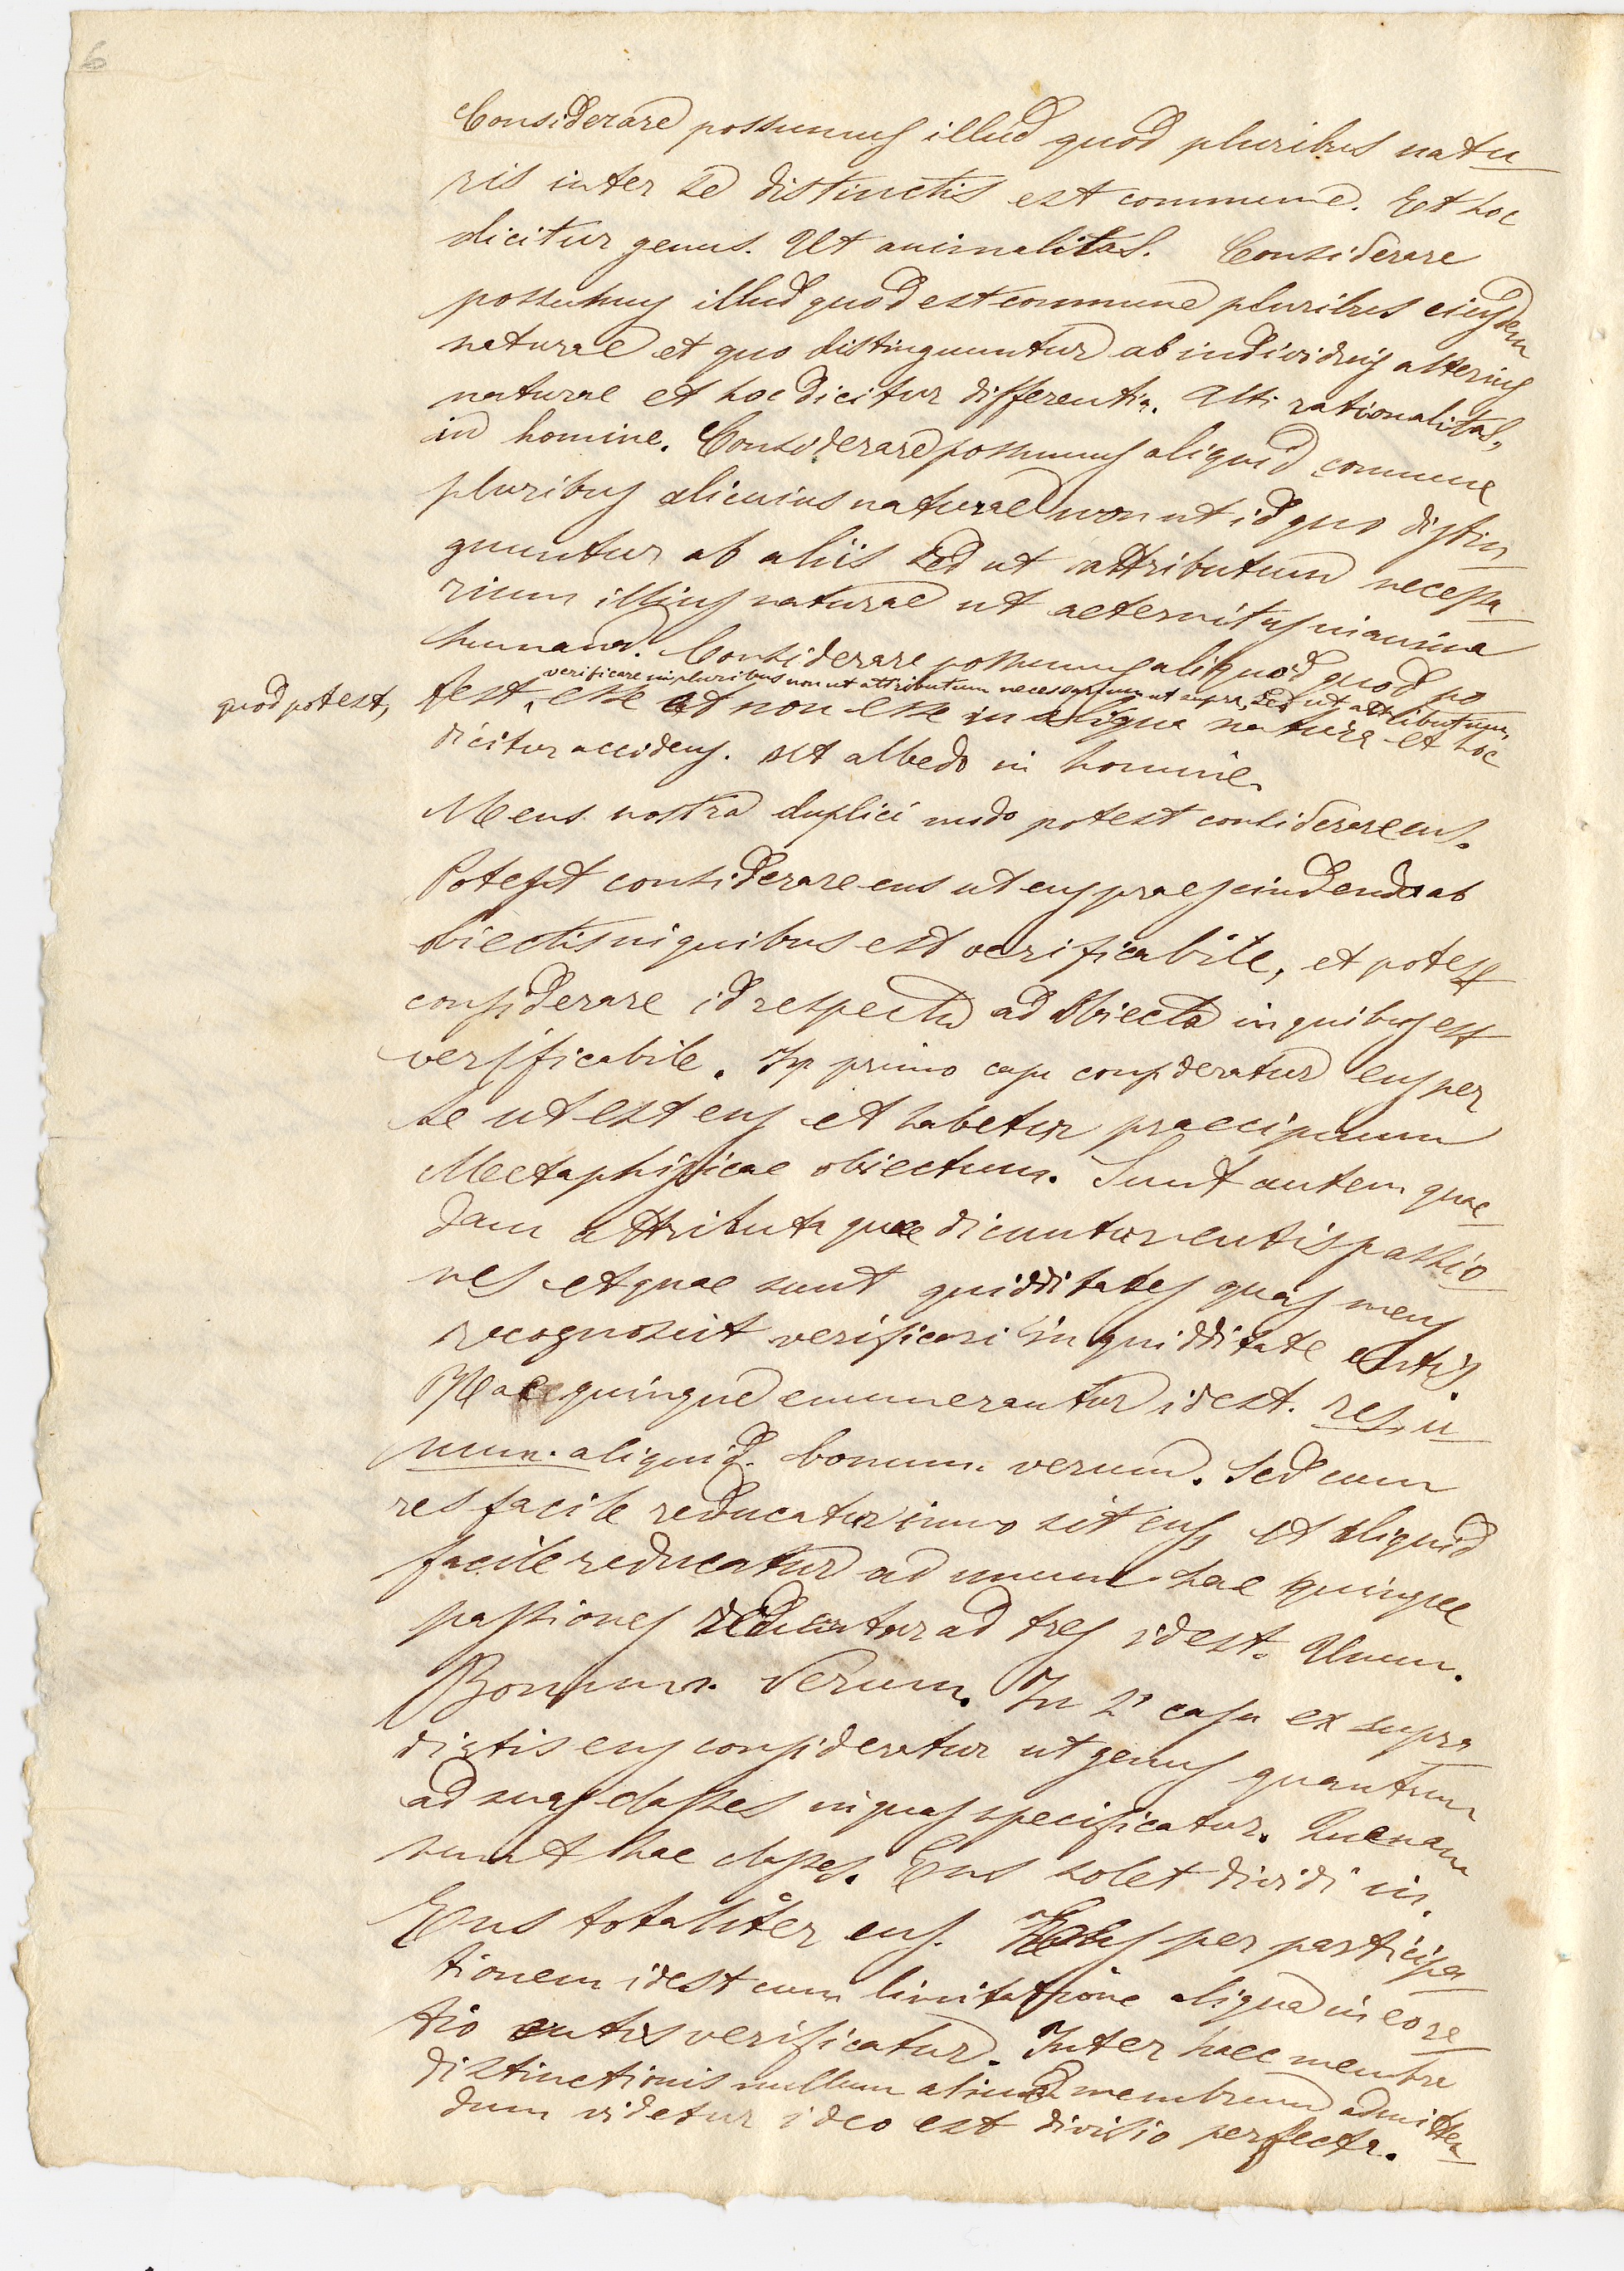 6
Considerare possumus illud quod pluribus natu
ris inter se distinctis est commune. Et hoc
dicitur genus. Ut animalitas. Considerare
possumus illud quod est commune pluribus eiusdem
naturae et quo distinguuntur ab individuis alterius
naturae et hoc dicitur differentia. Uti rationalitas,
in homine. Considerare possumus aliquid commune
pluribus alicuius naturae non ut id quo distin
guuntur ab aliis sed ut attributum necessa
rium illius naturae ut aeternitas in anima
humana. Considerare possumus aliquid quod po
verificare in pluribus non ut attributum necessarium ut supra, sed ut attributum,
quod potest,
test, esse et non esse in aliqua natura et hoc
dicitur accidens. ut albedo in homine.
Mens nostra duplici modo potest considerare ens.
Potest considerare ens ut ens praescindendo ab
obiectis in quibus est verificabile, et potest
considerare id respectu ad obiecta in quibus est
verificabile. In primo casu consideratur ens per
se ut est ens et habetur praecipuum
Mectaphisicae obiectum. Sunt autem quae
dam attributa quae dicuntur entis passio
nes et quae sunt quidditates quas mens
recognoscit verificari in quidditate entis.
Hae quinque enumerantur idest. res, u
num. aliquid. bonum. verum. Sed cum
res facile reducatur immo sit ens, et aliquid
facile reducatur ad unum hae quinque
passiones reducuntur ad tres idest. Unum.
Bonum. Verum. In 2º casu ex supra
dictis ens consideratur ut genus quantum
ad suas classes in quas specificatur. Quenam
sunt hae classes. Ens solet dividi in.
Ens totaliter ens. Ens per participa
tionem idest cum limitatione aliqua in eo re
tio entis verificatur. Inter haec membra
distinctionis nullum aliud membrum admitten
dum videtur ideo est divisio perfecta.